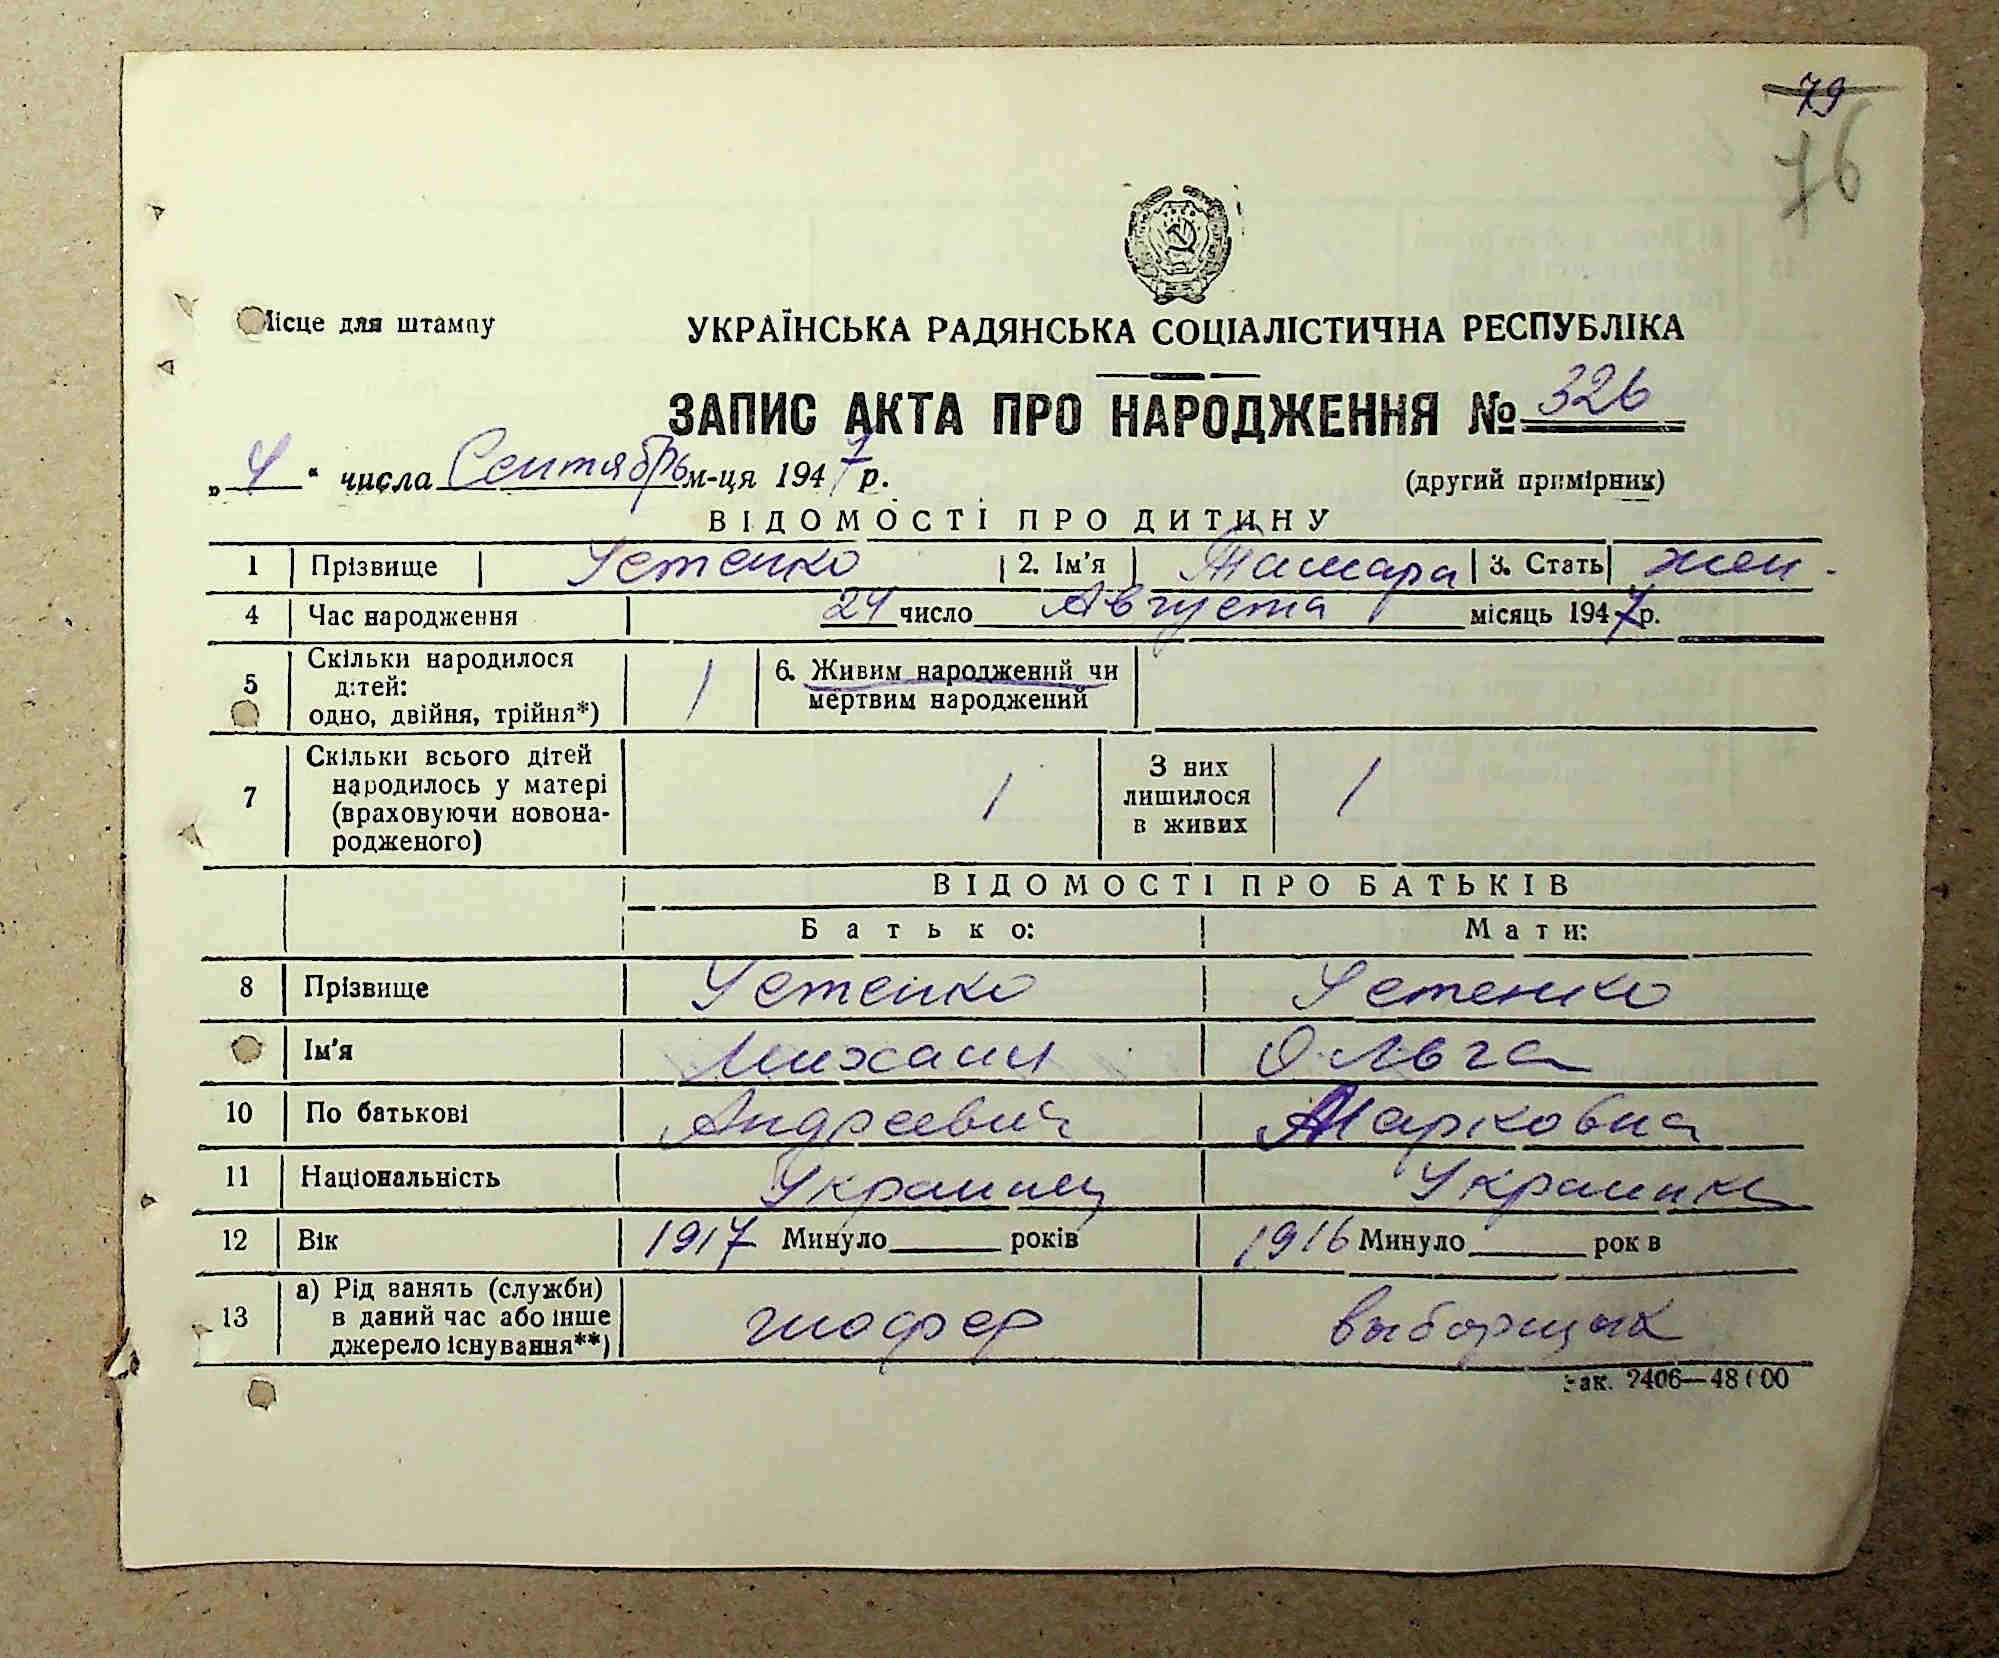 79
76
Місце для штампу
УКРАЇНСЬКА РАДЯНСЬКА СОЦІАЛІСТИЧНА РЕСПУБЛІКА
ЗАПИС АКТА ПРО НАРОДЖЕННЯ № 326
„4“ числа Сентябрь м-ця 1947 р. (другий примірник)
ВІДОМОСТІ ПРО ДИТИНУ
1 Прізвище Устенко 2. Ім'я Тамара 3. Стать жен.
4 Час народження 24 число Августа місяць 1947 р.
5 Скільки народилося дітей: одно, двійня, трійня*) 1 6. Живим народжений чи мертвим народжений
7 Скільки всього дітей народилось у матері (враховуючи новонародженого) 1 З них лишилося в живих 1
ВІДОМОСТІ ПРО БАТЬКІВ
Батько: Мати:
8 Прізвище Устенко Устенко
Ім'я Михаил Ольга
10 По батькові Андреевич Марковна
11 Національність Украинец Украинка
12 Вік 1917 Минуло років 1916 Минуло рок в
13 а) Рід занять (служби) в даний час або інше джерело існування**) шофер выборщик
Зак. 2406—48000